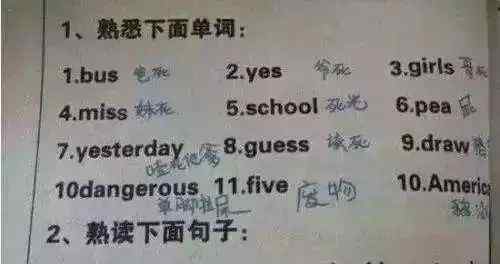 1、熟悉下面单词：
1.bus 爸死 2.yes 爷死 3.girls 哥死
4.miss 妹死 5.school 死光 6.pea 屁
7.yesterday 8.guess 该死 9.draw
10dangerous 11.five 废物 10.Americ
单脚拉屎
2、熟读下面句子：